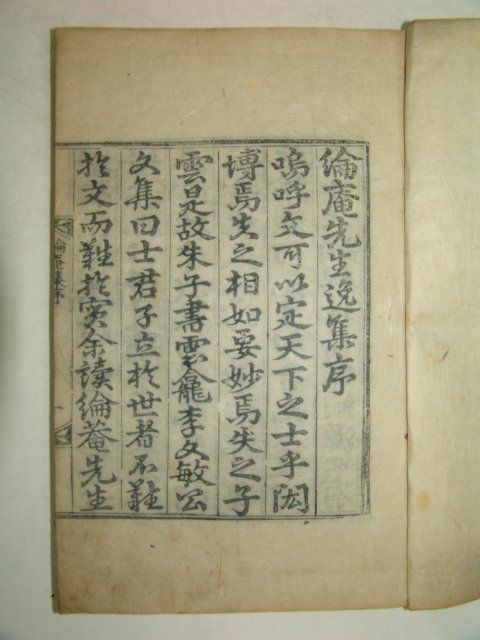 綸庵先生逸集序
嗚呼文可以定天下之士乎閎
博焉失之相如要妙焉失之子
雲是故朱子書雲龕李文敏公
文集曰士君子立於世者不難
於文而難於實余讀綸庵先生
綸庵集序
一